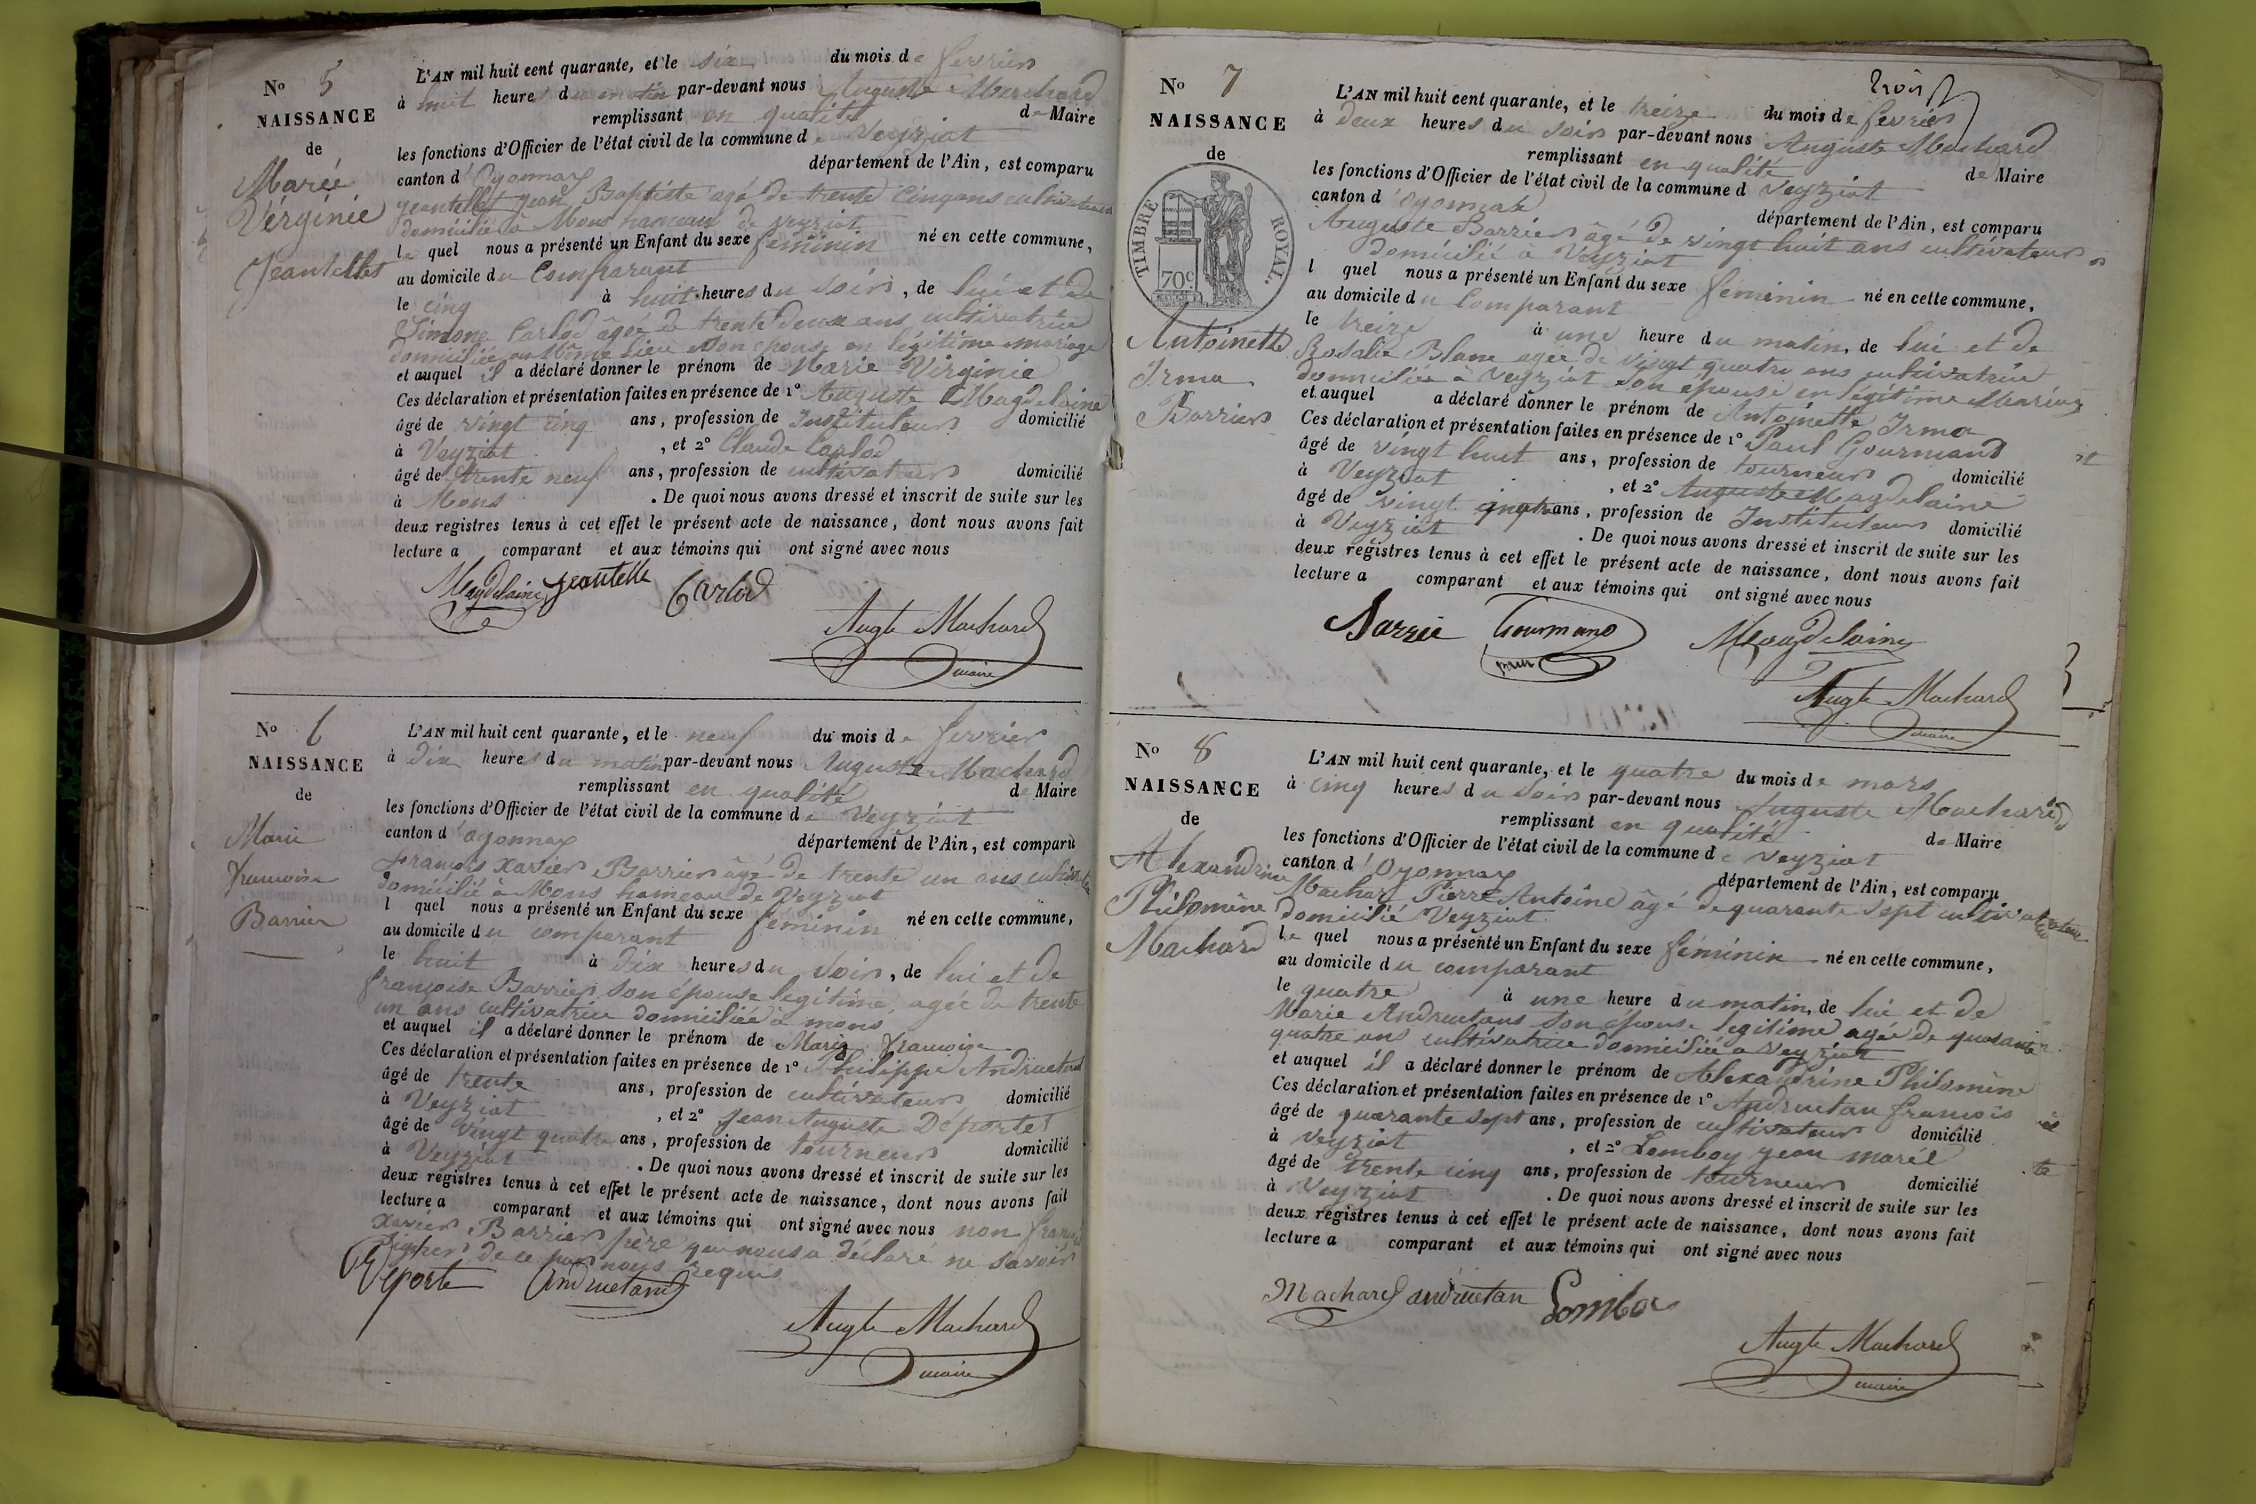 No 5
NAISSANCE
de
Marie
Vérginie
Jeantellet
L'AN mil huit cent quarante, et le six du mois de fevrier
à huit heures du matin par-devant nous Auguste Machard
remplissant en qualité de Maire
les fonctions d'Officier de l'état civil de la commune de Veyziat
canton d'Oyonnax département de l'Ain, est comparu
Jeantellet Jean Baptiste agé de trente cinq ans cultivateur
domicilié à Mons hameau de Veyziat
le quel nous a présenté un Enfant du sexe féminin né en cette commune,
au domicile du Comparant
le cinq à huit heures du soir, de lui et de
Simone Carlod âgée de trente deux ans cultivatrice
domiciliée au même lieu son épouse en légitime mariage
et auquel il a déclaré donner le prénom de Marie Virginie
Ces déclaration et présentation faites en présence de 1° Auguste Magdelaine
âgé de vingt cinq ans, profession de Instituteur domicilié
à Veyziat, et 2° Claude Carlod
âgé de trente neuf ans, profession de cultivateur domicilié
à Mons. De quoi nous avons dressé et inscrit de suite sur les
deux registres tenus à cet effet le présent acte de naissance, dont nous avons fait
lecture a comparant et aux témoins qui ont signé avec nous
Magdelaine Jeantelle Carlod
Augte Machard
maire
No 6
NAISSANCE
de
Marie
francoise
Barrier
L'AN mil huit cent quarante, et le neuf du mois de fevrier
à dix heures du matin par-devant nous Auguste Machard
remplissant en qualité de Maire
les fonctions d'Officier de l'état civil de la commune de Veyziat
canton d'oyonnax département de l'Ain, est comparu
françois Xavier Barrier âgé de trente un ans cultivateur
domicilié à Mons hameau de Veyziat
l quel nous a présenté un Enfant du sexe féminin né en cette commune,
au domicile du comparant
le huit à dix heures du soir, de lui et de
françoise Barrier son épouse legitime, agée de trente
un ans cultivatrice domiciliée à mons
et auquel il a déclaré donner le prénom de Marie francoise
Ces déclaration et présentation faites en présence de 1° Philippe Andruetan
âgé de trente ans, profession de cultivateur domicilié
à Veyziat, et 2° Jean Auguste Déportes
âgé de vingt quatre ans, profession de tourneur domicilié
à Veyziat. De quoi nous avons dressé et inscrit de suite sur les
deux registres tenus à cet effet le présent acte de naissance, dont nous avons fait
lecture a comparant et aux témoins qui ont signé avec nous non françois
Xavier Barrier père qui nous a déclaré ne savoir
signer de ce par nous requis
Deporte Andruetan
Augte Machard
maire
trois
No 7
NAISSANCE
de
TIMBRE ROYAL.
70c
Antoinette
Irma
Barrier
L'AN mil huit cent quarante, et le treize du mois de fevrier
à deux heures du soir par-devant nous Auguste Machard
remplissant en qualité de Maire
les fonctions d'Officier de l'état civil de la commune d Veyziat
canton d'oyonnax département de l'Ain, est comparu
Auguste Barrier âgé de vingt huit ans cultivateur
domicilié à Veyziat
l quel nous a présenté un Enfant du sexe féminin né en cette commune,
au domicile du Comparant
le treize à une heure du matin, de lui et de
Rosalie Blanc agée de vingt quatre ans cultivatrice
domiciliée à Veyziat son épouse en légitime Mariage
et auquel a déclaré donner le prénom de Antoinette Irma
Ces déclaration et présentation faites en présence de 1° Paul Gourmand
âgé de vingt huit ans, profession de tourneur domicilié
à Veyziat, et 2° Auguste Magdelaine
âgé de vingt cinq ans, profession de Instituteur domicilié
à Veyziat. De quoi nous avons dressé et inscrit de suite sur les
deux registres tenus à cet effet le présent acte de naissance, dont nous avons fait
lecture a comparant et aux témoins qui ont signé avec nous
Barrié Gourmand Magdelaine
Augte Machard
maire
No 8
NAISSANCE
de
Alexandrine
Philomène
Machard
L'AN mil huit cent quarante, et le quatre du mois de mars
à cinq heures du soir par-devant nous Auguste Machard
remplissant en qualité de Maire
les fonctions d'Officier de l'état civil de la commune de Veyziat
canton d'Oyonnax département de l'Ain, est comparu
Machard Pierre Antoine âgé de quarante sept cultivateur
domicilié Veyziat
le quel nous a présenté un Enfant du sexe féminin né en cette commune,
au domicile du comparant
le quatre à une heure du matin, de lui et de
Marie Andruetans son épouse legitime agée de quarante
quatre ans cultivatrice domiciliée a Veyziat
et auquel il a déclaré donner le prénom de Alexandrine Philomène
Ces déclaration et présentation faites en présence de 1° Andruetan francois
âgé de quarante sept ans, profession de cultivateur domicilié
à Veyziat, et 2° Lomboy jean marie
âgé de trente cinq ans, profession de tourneur domicilié
à Veyziat. De quoi nous avons dressé et inscrit de suite sur les
deux registres tenus à cet effet le présent acte de naissance, dont nous avons fait
lecture a comparant et aux témoins qui ont signé avec nous
Machard andruetan
Augte Machard
maire